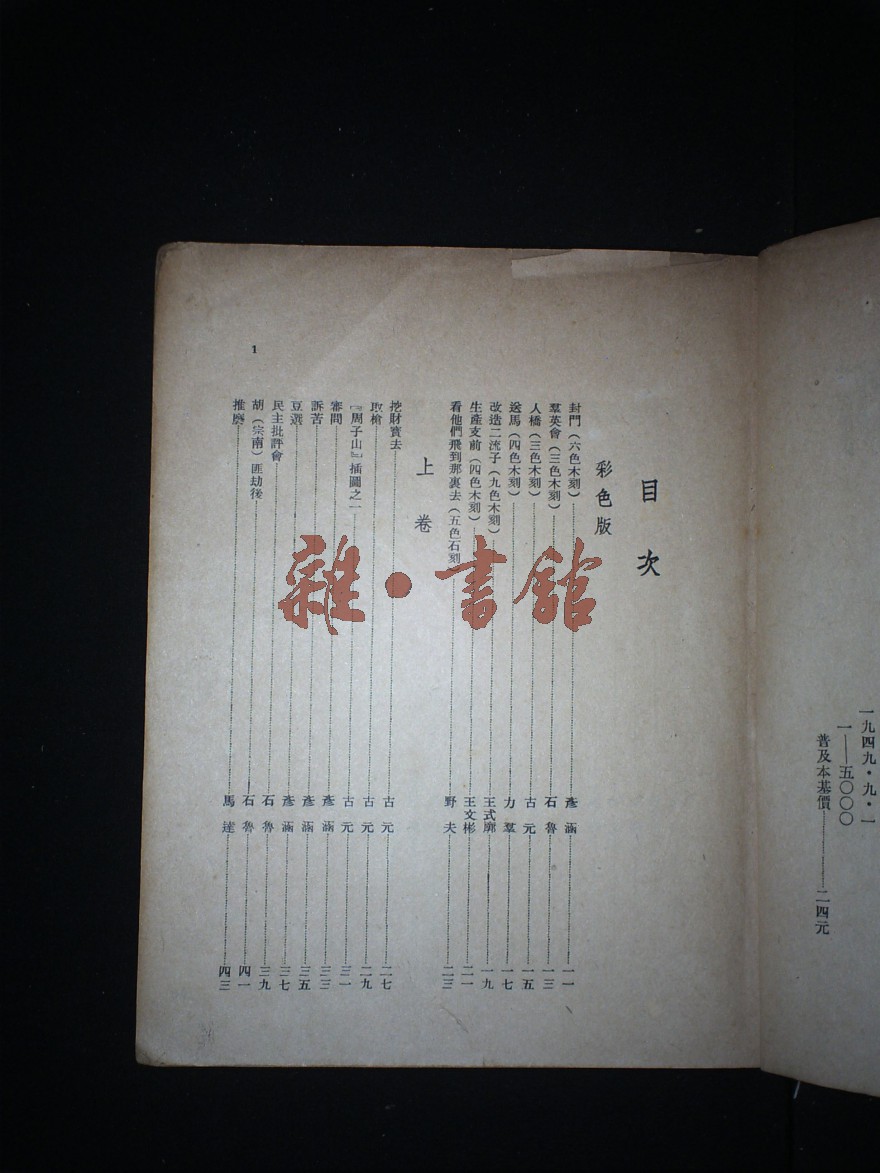 一九四九·九·一
一——五〇〇〇
普及本基價————二四元
目次
彩色版
封門(六色木刻)……彥涵……一一
羣英會(三色木刻)……石魯……一三
人橋(三色木刻)……古元……一五
送馬(四色木刻)……力羣……一七
改造二流子(九色木刻)……王式廓……一九
生產支前(四色木刻)……王文彬……二一
看他們飛到那裏去(五色石刻)……野夫……二三
上卷
挖財寶去……古元……二七
取槍……古元……二九
『周子山』插圖之一……古元……三一
審問……彥涵……三三
訴苦……彥涵……三五
豆選……彥涵……三七
民主批評會……石魯……三九
胡(宗南)匪劫後……石魯……四一
推磨……馬達……四三
1
雜·書館